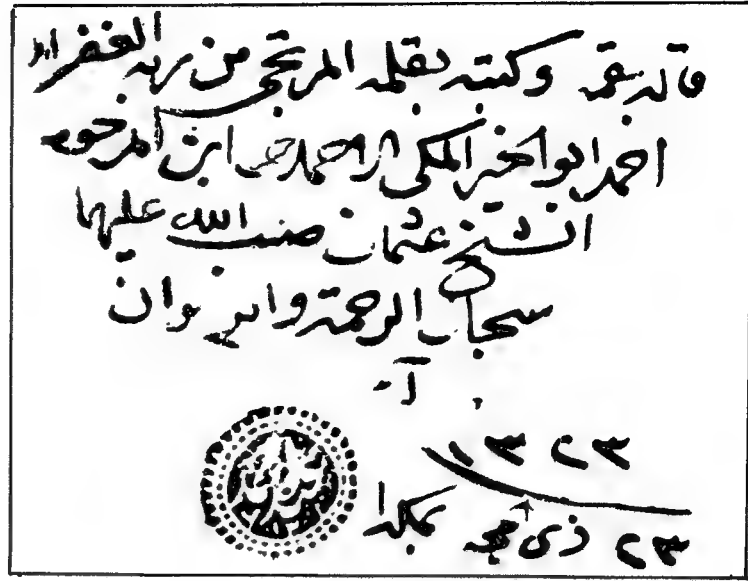 قاله بفمه وكتبه بقلمه المرتجى من ربه الغفران
احمد ابوالخير المكى الاحمدى ابن المرحوم
الشيخ عثمان صب الله عليهما
سجال الرحمة والرضوان
آمين
١٣٢٣
٢٣ ذى حجه